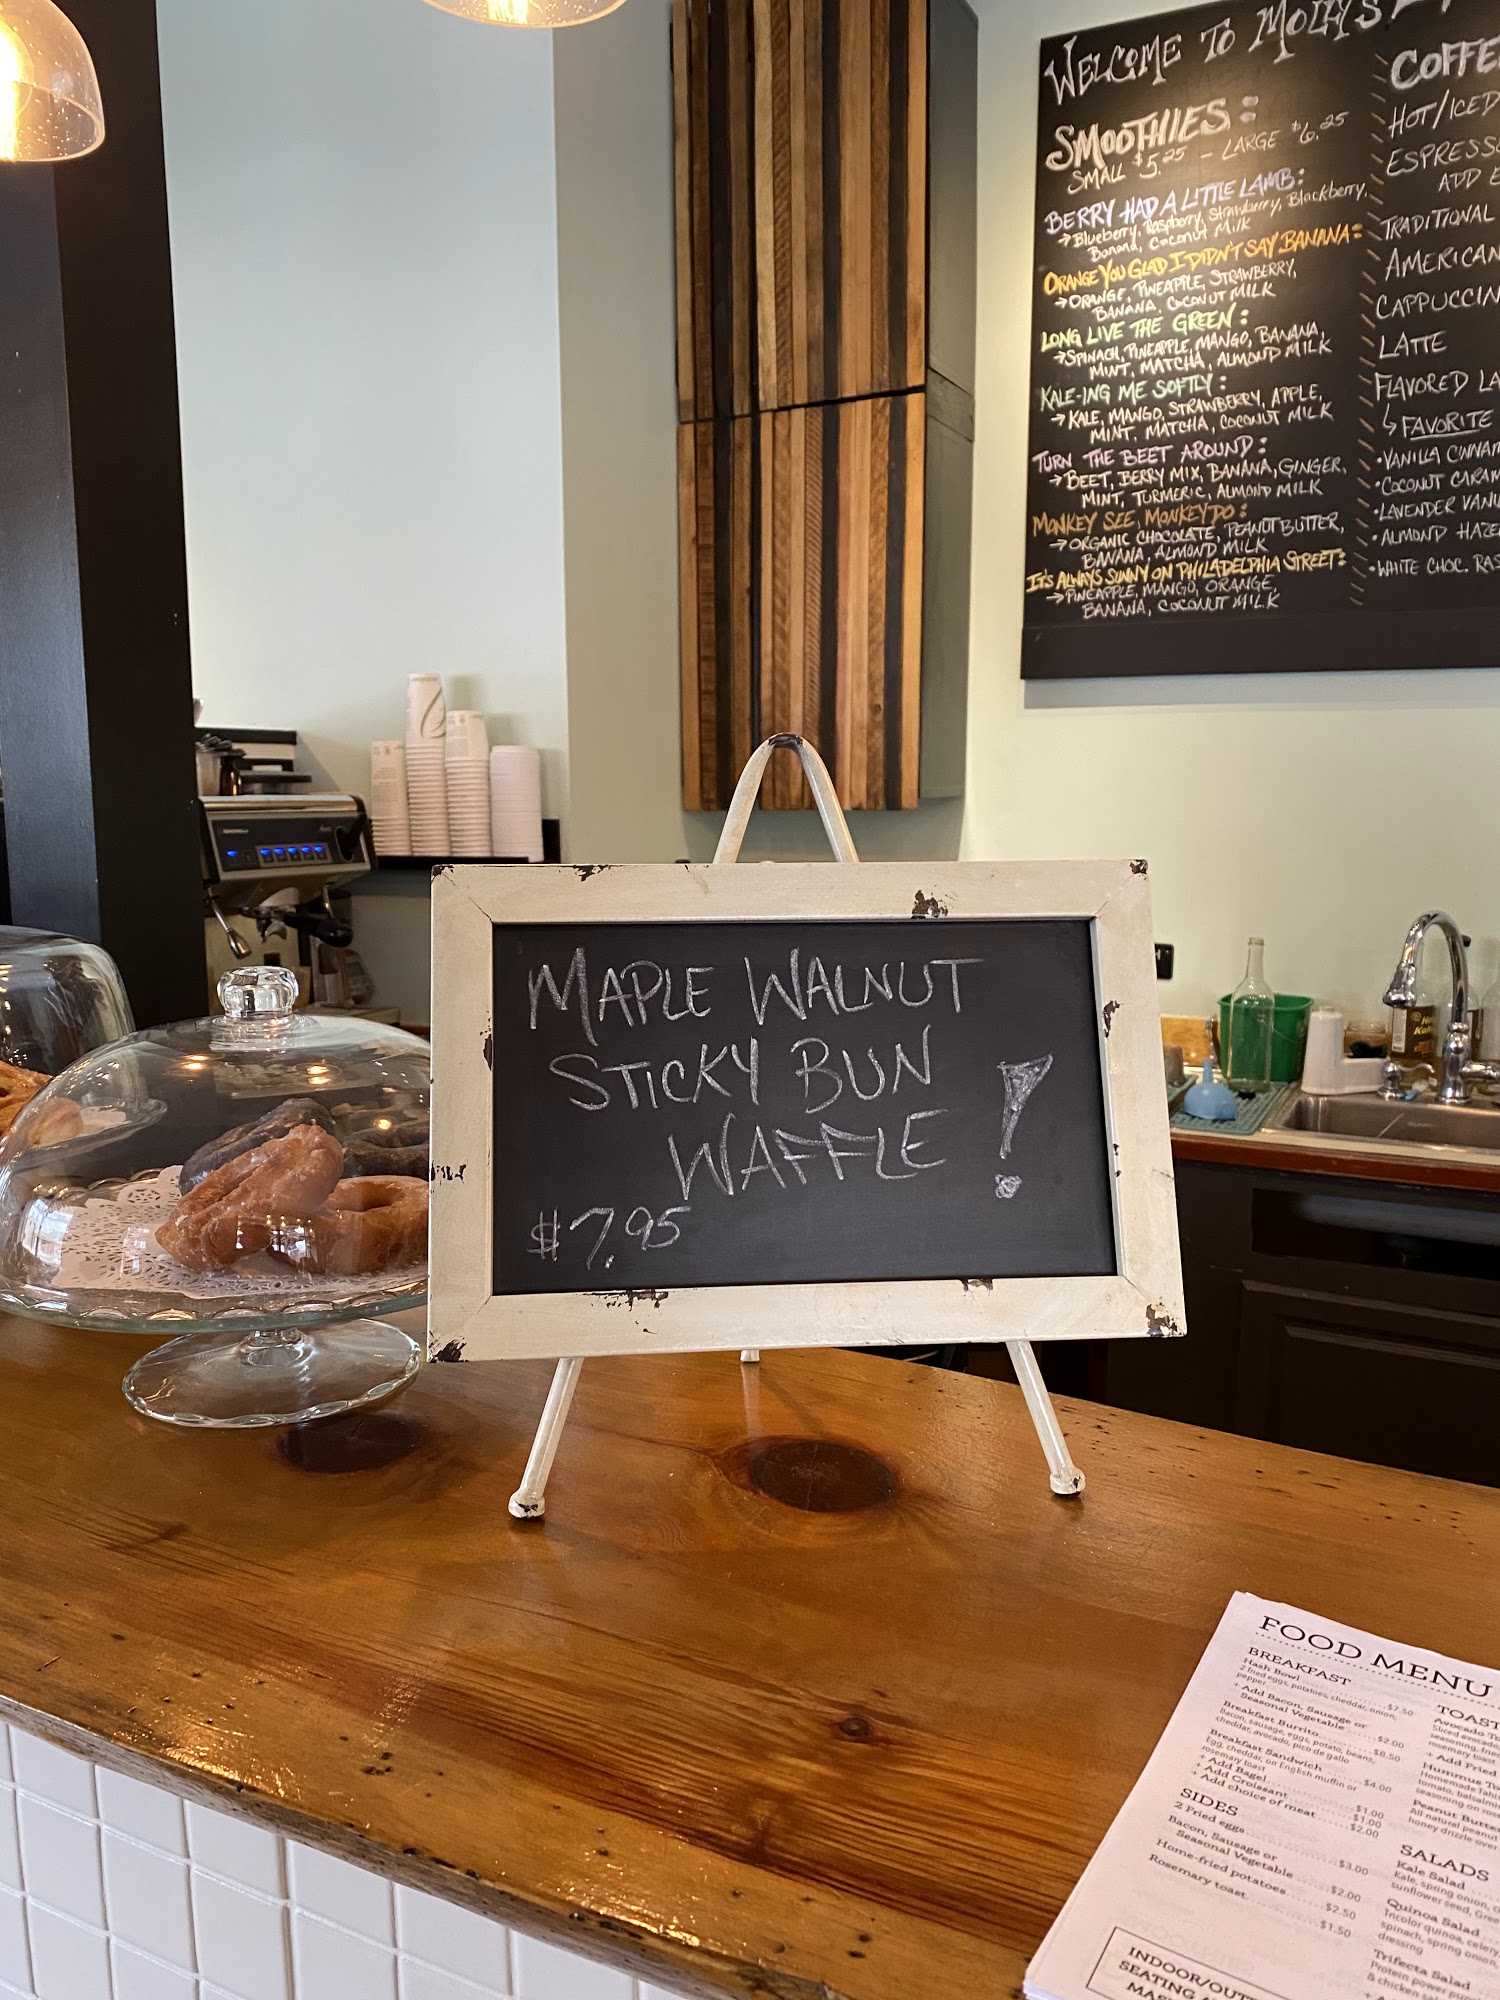 WELCOME TO MOLLY'S
SMOOTHIES:
SMALL $5.25 - LARGE $6.25
BERRY HAD A LITTLE LAMB:
→ Blueberry, Raspberry, Strawberry, Blackberry,
Banana, Coconut Milk
ORANGE YOU GLAD I DIDN'T SAY BANANA:
→ ORANGE, PINEAPPLE, STRAWBERRY,
BANANA, COCONUT MILK
LONG LIVE THE GREEN:
→ SPINACH, PINEAPPLE, MANGO, BANANA,
MINT, MATCHA, ALMOND MILK
KALE-ING ME SOFTLY:
→ KALE, MANGO, STRAWBERRY, APPLE,
MINT, MATCHA, COCONUT MILK
TURN THE BEET AROUND:
→ BEET, BERRY MIX, BANANA, GINGER,
MINT, TURMERIC, ALMOND MILK
MONKEY SEE, MONKEY DO:
→ ORGANIC CHOCOLATE, PEANUT BUTTER,
BANANA, ALMOND MILK
IT'S ALWAYS SUNNY ON PHILADELPHIA STREET:
→ PINEAPPLE, MANGO, ORANGE,
BANANA, COCONUT MILK
COFFE
HOT/ICED
ESPRESS
ADD
TRADITIONAL
AMERICAN
CAPPUCCIN
LATTE
FLAVORED LA
↳ FAVORITE
• VANILLA CINNAM
• COCONUT CARAM
• LAVENDER VANI
• ALMOND HAZE
• WHITE CHOC. RAS
MAPLE WALNUT
STICKY BUN
WAFFLE !
$7.95
FOOD MENU
BREAKFAST
Hash Bowl $7.50
2 fried eggs, potatoes, cheddar, onion,
pepper
+ Add Bacon, Sausage or
Seasonal Vegetable $2.00
Breakfast Burrito $8.50
Bacon, sausage, eggs, potato, beans,
cheddar, avocado, pico de gallo
Breakfast Sandwich $4.00
Egg, cheddar, on English muffin or
rosemary toast
+ Add Bagel $1.00
+ Add Croissant $1.00
+ Add choice of meat $2.00
SIDES
2 Fried eggs $3.00
Bacon, Sausage or
Seasonal Vegetable $2.00
Home-fried potatoes $2.50
Rosemary toast $1.50
INDOOR/OUT
SEATING
MAS
TOAST
Avocado To
Sliced avocado
seasoning, frie
rosemary toast
+ Add Fried
Hummus To
Homemade Tahi
tomato, balsami
seasoning on ros
Peanut Butte
All natural peanut
honey drizzle over
SALADS
Kale Salad
Kale, spring onion, c
sunflower seed, Gree
Quinoa Salad
Tricolor quinoa, celery
spinach, spring onion,
dressing
Trifecta Salad
Protein power
& chicken sal